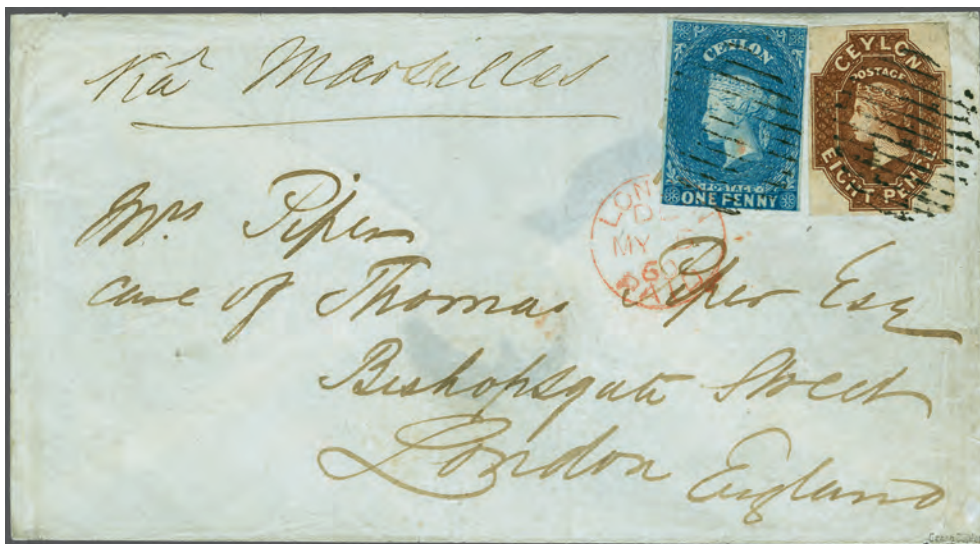 Via Marseilles
CEYLON
POSTAGE
ONE PENNY
CEYLON
POSTAGE
EIGHT PENCE
LON
MY
60
PAID
Mrs Piper
care of Thomas Piper Esq
Bishopsgate Street
London
England